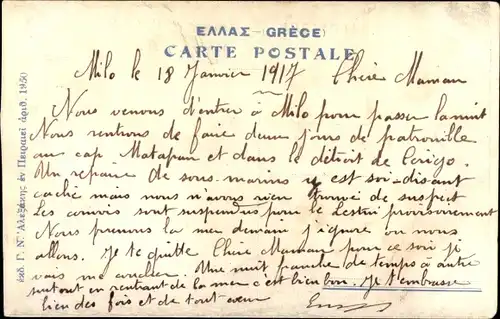 ΕΛΛΑΣ (GRÈCE)
CARTE POSTALE
Milo le 18 Janvier 1917 Chère Maman
Nous venons d'entrer à Milo pour passer la nuit
Nous rentrons de faire deux jours de patrouille
au cap Matapan et dans le détroit de Cerigo.
Un repaire de sous-marins y est soi-disant
caché mais nous n'avons rien trouvé de suspect
Les convois sont suspendus pour le provisoirement
Nous prenons la mer demain j'ignore ou nous
allons. Je te quitte Chère Maman pour ce soir je
vais me coucher. Une nuit franche de temps à autre
surtout en rentrant de la mer c'est bien bon. Je t'embrasse
bien des fois et de tout cœur
ἐκδ. Γ. Ν. Ἀλεξάκης ἐν Πειραιεῖ ἀριθ. 1950